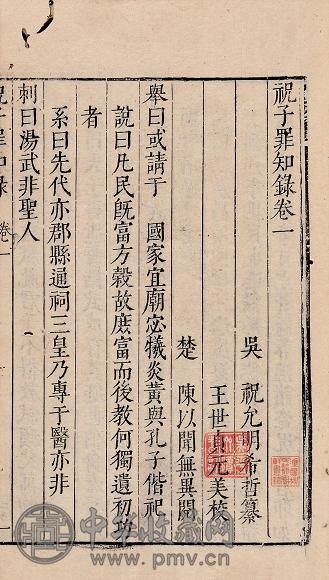 祝子罪知錄卷一
吳　祝允明希哲纂
王世貞元美校
楚　陳以聞無異閱
舉曰或請于　國家宜廟宓犧炎黃與孔子偕祀
說曰凡民旣富方榖故庶富而後教何獨遺初功
者
系曰先代亦郡縣通祠三皇乃專于醫亦非
刺曰湯武非聖人
祝子罪知錄　卷一
中華收藏网
www.pmv.cn